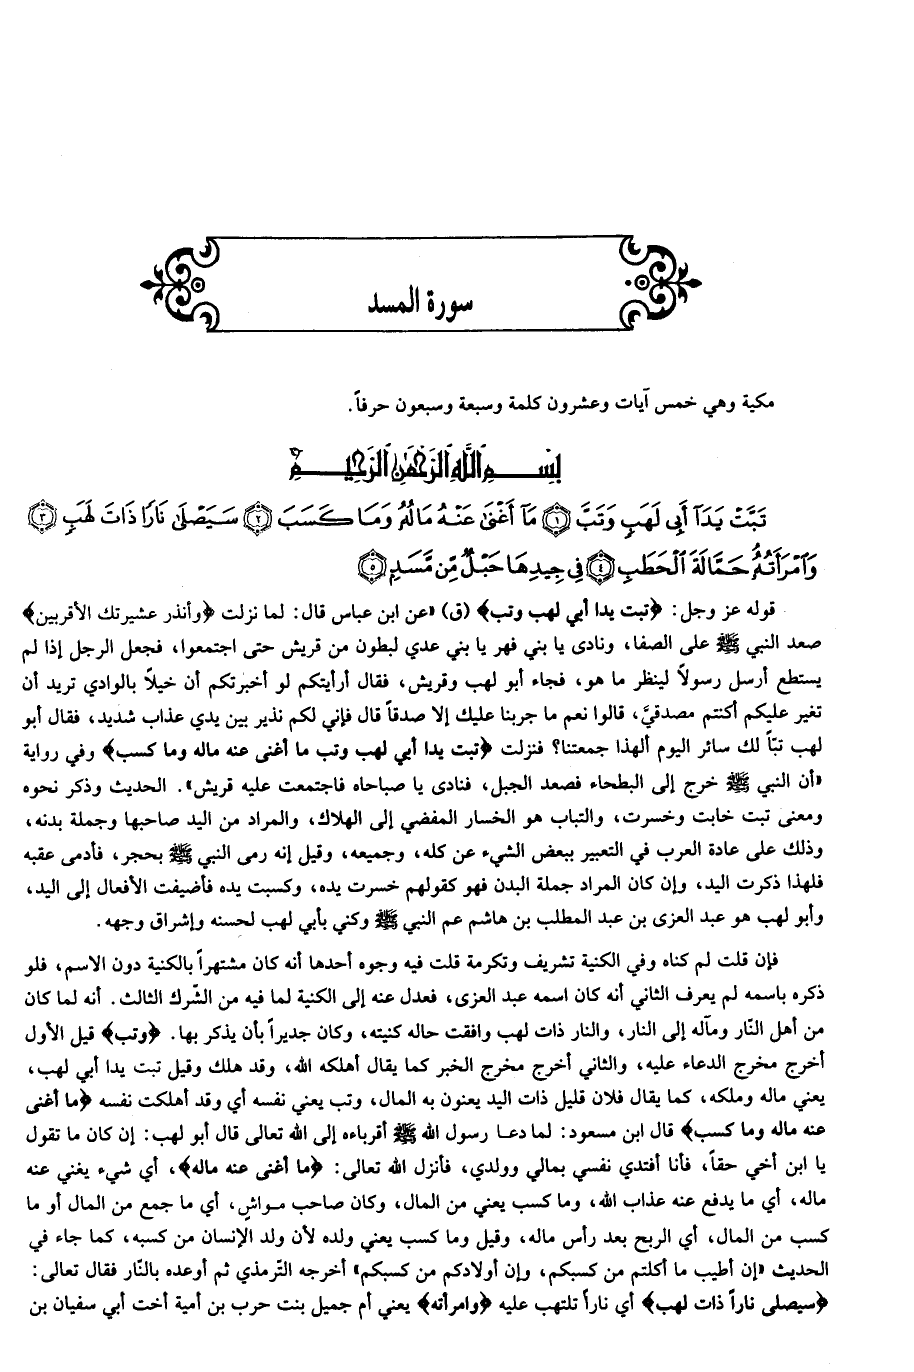 سورة المسد
مكية وهي خمس آيات وعشرون كلمة وسبعة وسبعون حرفاً.
بِسْمِ ٱللَّهِ ٱلرَّحْمَٰنِ ٱلرَّحِيمِ
تَبَّتْ يَدَآ أَبِى لَهَبٍ وَتَبَّ ۝١ مَآ أَغْنَىٰ عَنْهُ مَالُهُۥ وَمَا كَسَبَ ۝٢ سَيَصْلَىٰ نَارًا ذَاتَ لَهَبٍ ۝٣
وَٱمْرَأَتُهُۥ حَمَّالَةَ ٱلْحَطَبِ ۝٤ فِى جِيدِهَا حَبْلٌ مِّن مَّسَدٍ ۝٥
قوله عز وجل: ﴿تبت يدا أبي لهب وتب﴾ (ق) «عن ابن عباس قال: لما نزلت ﴿وأنذر عشيرتك الأقربين﴾
صعد النبي ﷺ على الصفا، ونادى يا بني فهر يا بني عدي لبطون من قريش حتى اجتمعوا، فجعل الرجل إذا لم
يستطع أرسل رسولاً لينظر ما هو، فجاء أبو لهب وقريش، فقال أرأيتكم لو أخبرتكم أن خيلاً بالوادي تريد أن
تغير عليكم أكنتم مصدقيَّ، قالوا نعم ما جربنا عليك إلا صدقاً قال فإني لكم نذير بين يدي عذاب شديد، فقال أبو
لهب تبّاً لك سائر اليوم ألهذا جمعتنا؟ فنزلت ﴿تبت يدا أبي لهب وتب ما أغنى عنه ماله وما كسب﴾ وفي رواية
«أن النبي ﷺ خرج إلى البطحاء فصعد الجبل، فنادى يا صباحاه فاجتمعت عليه قريش». الحديث وذكر نحوه
ومعنى تبت خابت وخسرت، والتباب هو الخسار المفضي إلى الهلاك، والمراد من اليد صاحبها وجملة بدنه،
وذلك على عادة العرب في التعبير ببعض الشيء عن كله، وجميعه، وقيل إنه رمى النبي ﷺ بحجر، فأدمى عقبه
فلهذا ذكرت اليد، وإن كان المراد جملة البدن فهو كقولهم خسرت يده، وكسبت يده فأضيفت الأفعال إلى اليد،
وأبو لهب هو عبد العزى بن عبد المطلب بن هاشم عم النبي ﷺ وكني بأبي لهب لحسنه وإشراق وجهه.
فإن قلت لم كناه وفي الكنية تشريف وتكرمة قلت فيه وجوه أحدها أنه كان مشتهراً بالكنية دون الاسم، فلو
ذكره باسمه لم يعرف الثاني أنه كان اسمه عبد العزى، فعدل عنه إلى الكنية لما فيه من الشّرك الثالث. أنه لما كان
من أهل النّار ومآله إلى النار، والنار ذات لهب وافقت حاله كنيته، وكان جديراً بأن يذكر بها. ﴿وتب﴾ قيل الأول
أخرج مخرج الدعاء عليه، والثاني أخرج مخرج الخبر كما يقال أهلكه الله، وقد هلك وقيل تبت يدا أبي لهب،
يعني ماله وملكه، كما يقال فلان قليل ذات اليد يعنون به المال، وتب يعني نفسه أي وقد أهلكت نفسه ﴿ما أغنى
عنه ماله وما كسب﴾ قال ابن مسعود: لما دعا رسول الله ﷺ أقرباءه إلى الله تعالى قال أبو لهب: إن كان ما تقول
يا ابن أخي حقاً، فأنا أفتدي نفسي بمالي وولدي، فأنزل الله تعالى: ﴿ما أغنى عنه ماله﴾، أي شيء يغني عنه
ماله، أي ما يدفع عنه عذاب الله، وما كسب يعني من المال، وكان صاحب مواشٍ، أي ما جمع من المال أو ما
كسب من المال، أي الربح بعد رأس ماله، وقيل وما كسب يعني ولده لأن ولد الإنسان من كسبه، كما جاء في
الحديث «إن أطيب ما أكلتم من كسبكم، وإن أولادكم من كسبكم» أخرجه التّرمذي ثم أوعده بالنّار فقال تعالى:
﴿سيصلى ناراً ذات لهب﴾ أي ناراً تلتهب عليه ﴿وامرأته﴾ يعني أم جميل بنت حرب بن أمية أخت أبي سفيان بن